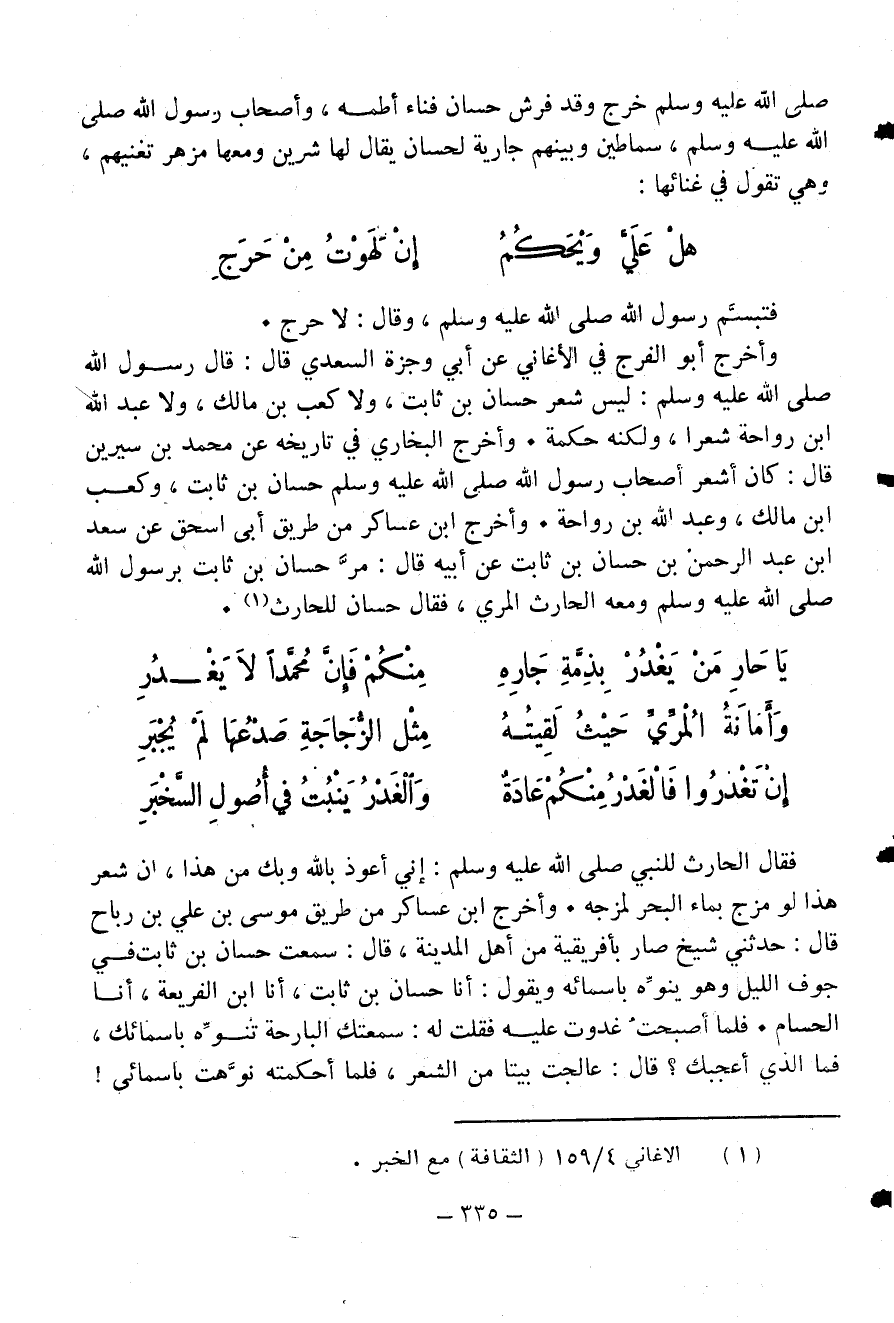 صلى الله عليه وسلم خرج وقد فرش حسان فناء أطمـــه ، وأصحاب رسول الله صلى
الله عليـــه وسلم ، سماطين وبينهم جارية لحسان يقال لها شرين ومعها مزهر تغنيهم ،
وهي تقول في غنائها :
هلْ عَلَيَّ وَيْحَكُمُ إِنْ لَهَوْتُ مِنْ حَرَجِ
فتبسَّم رسول الله صلى الله عليه وسلم ، وقال : لا حرج .
وأخرج أبو الفرج في الأغاني عن أبي وجزة السعدي قال : قال رســول الله
صلى الله عليه وسلم : ليس شعر حسان بن ثابت ، ولا كعب بن مالك ، ولا عبد الله
ابن رواحة شعرا ، ولكنه حكمة . وأخرج البخاري في تاريخه عن محمد بن سيرين
قال : كان أشعر أصحاب رسول الله صلى الله عليه وسلم حسان بن ثابت ، وكعــب
ابن مالك ، وعبد الله بن رواحة . وأخرج ابن عساكر من طريق أبى اسحق عن سعد
ابن عبد الرحمن بن حسان بن ثابت عن أبيه قال : مرَّ حسان بن ثابت برسول الله
صلى الله عليه وسلم ومعه الحارث المري ، فقال حسان للحارث(١) .
يَا حَارِ مَنْ يَغْدُرْ بِذِمَّةِ جَارِهِ مِنْكُمْ فَإِنَّ مُحَمَّداً لاَ يَغْــدُرِ
وَأَمَانَةُ الْمُرِّيِّ حَيْثُ لَقِيتُـهُ مِثْل الزُّجَاجَةِ صَدْعُهَا لَمْ يُجْبَرِ
إِنْ تَغْدرُوا فَالْغَدْرُ مِنْكُمْ عَادَةٌ وَالْغَدْرُ يَنْبُتُ في أُصُولِ السَّخْبَرِ
فقال الحارث للنبي صلى الله عليه وسلم : إني أعوذ بالله وبك من هذا ، ان شعر
هذا لو مزج بماء البحر لمزجه . وأخرج ابن عساكر من طريق موسى بن علي بن رباح
قال : حدثني شيخ صار بأفريقية من أهل المدينة ، قال : سمعت حسان بن ثابت فــي
جوف الليل وهو ينوِّه باسمائه ويقول : أنا حسان بن ثابت ، أنا ابن الفريعة ، أنــا
الحسام . فلما أصبحتُ غدوت عليـــه فقلت له : سمعتك البارحة تنــوِّه باسمائك ،
فما الذي أعجبك ؟ قال : عالجت بيتا من الشعر ، فلما أحكمته نوَّهت باسمائي !
(١) الاغاني ١٥٩/٤ (الثقافة) مع الخبر .
– ٣٣٥ –